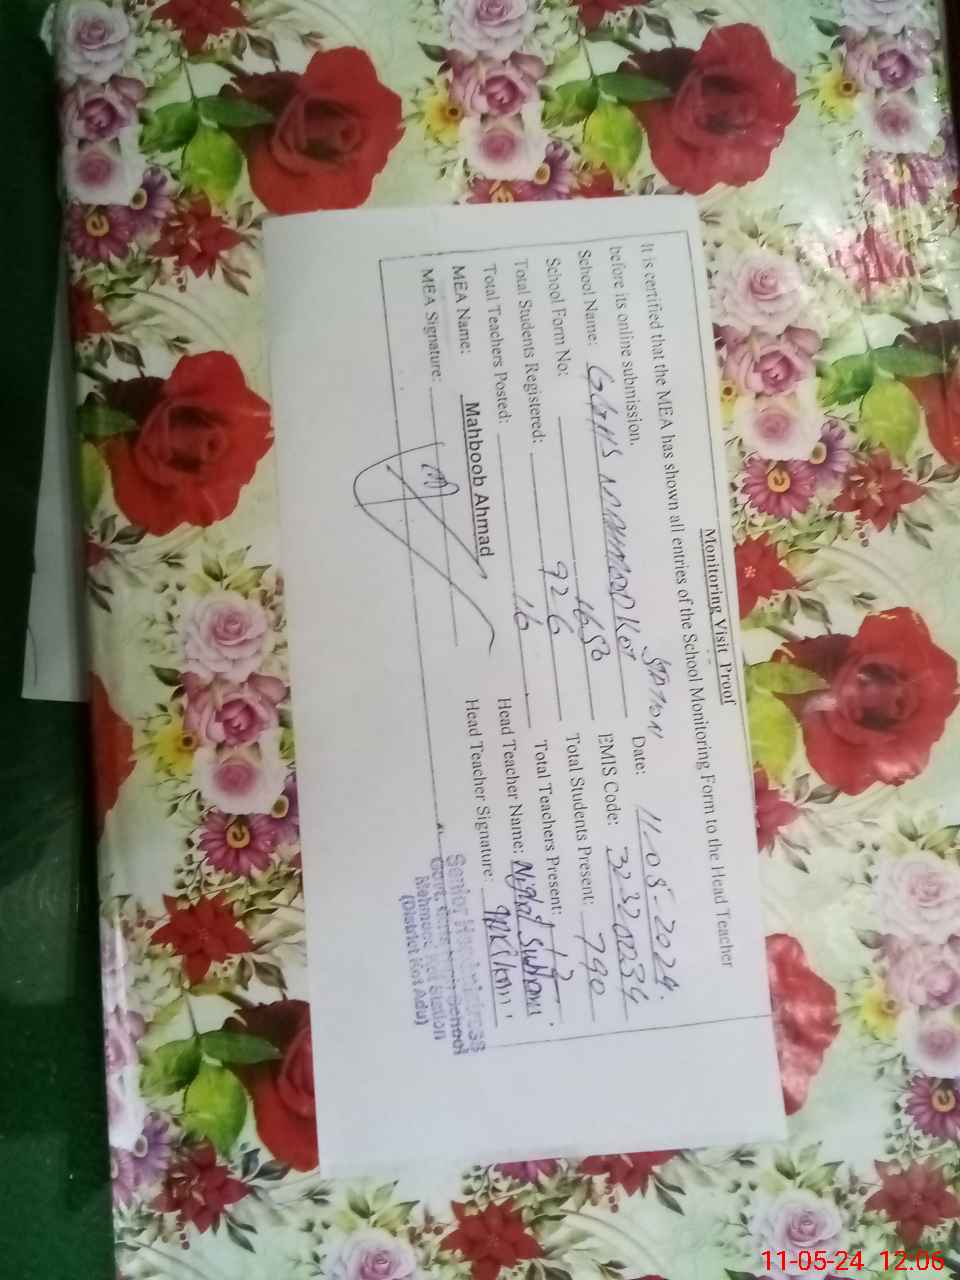 Monitoring Visit Proof
It is certified that the MEA has shown all entries of the School Monitoring Form to the Head Teacher
before its online submission.
STATION
School Name: GGHS MAHMOOD KOT Date: 11-05-2024.
School Form No: EMIS Code: 32320034
Total Students Registered: 926 Total Students Present: 790
Total Teachers Posted: 16 Total Teachers Present:
MEA Name: Mahboob Ahmad Head Teacher Name:
MEA Signature: Head Teacher Signature:
Senior Headmistress
Govt. Girls High School
Mehmood Kot Station
(District Kot Adu)
11-05-24 12:06